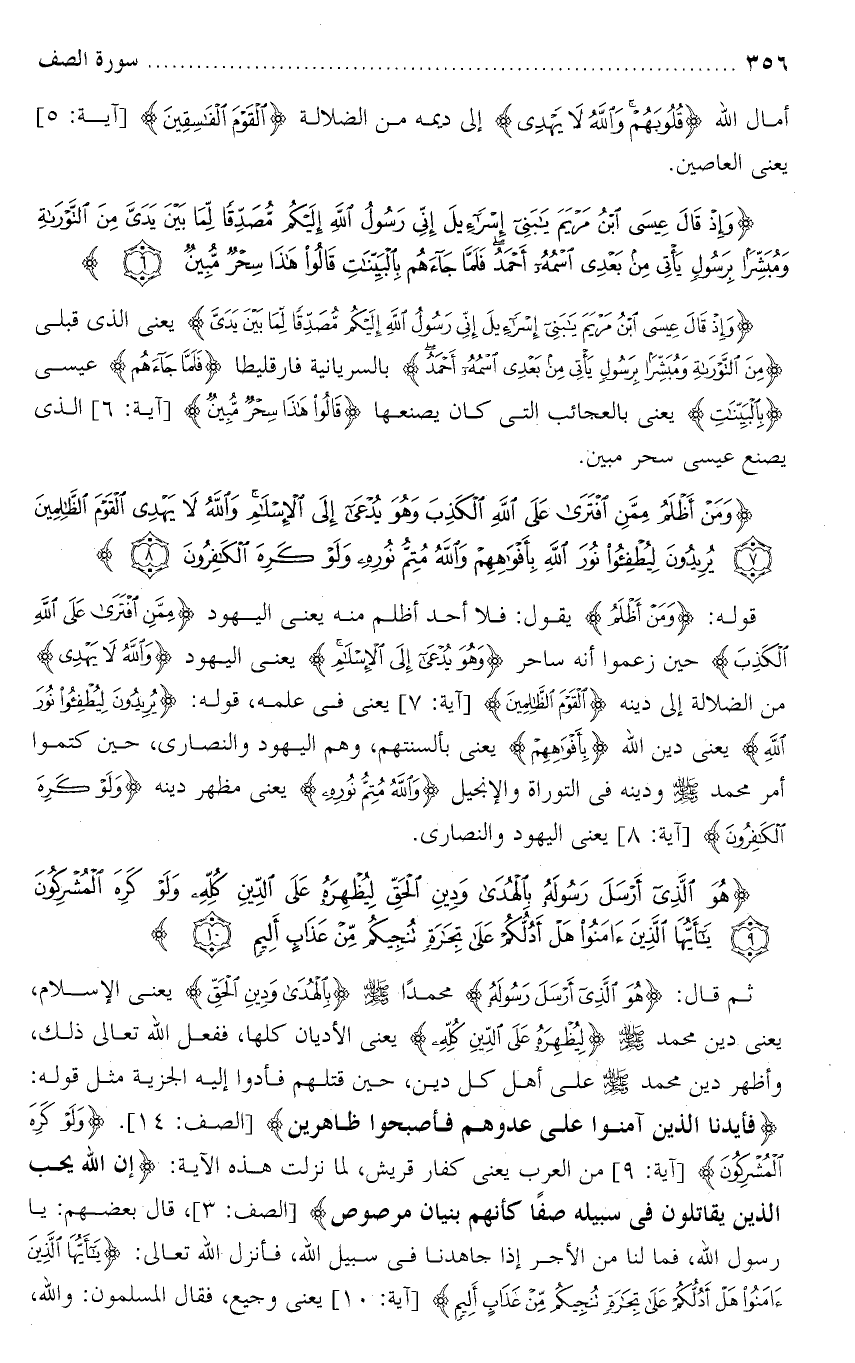 ٣٥٦ ........................................................................ سورة الصف
أمـال الله ﴿قُلُوبَهُمْ وَاللَّهُ لَا يَهْدِى﴾ إلى ديمه مـن الضلالـة ﴿الْقَوْمَ الْفَاسِقِينَ﴾ [آيــة: ٥]
يعنى العاصين.
﴿وَإِذْ قَالَ عِيسَى ابْنُ مَرْيَمَ يَابَنِىٓ إِسْرَٰٓءِيلَ إِنِّى رَسُولُ اللَّهِ إِلَيْكُم مُّصَدِّقًا لِّمَا بَيْنَ يَدَىَّ مِنَ التَّوْرَاةِ
وَمُبَشِّرًا بِرَسُولٍ يَأْتِى مِنْ بَعْدِى اسْمُهُۥ أَحْمَدُ فَلَمَّا جَآءَهُم بِالْبَيِّنَاتِ قَالُوا۟ هَٰذَا سِحْرٌ مُّبِينٌ ٦ ﴾
﴿وَإِذْ قَالَ عِيسَى ابْنُ مَرْيَمَ يَابَنِىٓ إِسْرَٰٓءِيلَ إِنِّى رَسُولُ اللَّهِ إِلَيْكُم مُّصَدِّقًا لِّمَا بَيْنَ يَدَىَّ﴾ يعنى الذى قبلـى
﴿مِنَ التَّوْرَاةِ وَمُبَشِّرًا بِرَسُولٍ يَأْتِى مِنْ بَعْدِى اسْمُهُۥ أَحْمَدُ﴾ بالسريانية فارقليطا ﴿فَلَمَّا جَآءَهُم﴾ عيسـى
﴿بِالْبَيِّنَاتِ﴾ يعنى بالعجائب التـى كـان يصنعـها ﴿قَالُوا۟ هَٰذَا سِحْرٌ مُّبِينٌ﴾ [آيـة: ٦] الـذى
يصنع عيسى سحر مبين.
﴿وَمَنْ أَظْلَمُ مِمَّنِ افْتَرَىٰ عَلَى اللَّهِ الْكَذِبَ وَهُوَ يُدْعَىٰٓ إِلَى الْإِسْلَامِ وَاللَّهُ لَا يَهْدِى الْقَوْمَ الظَّالِمِينَ
٧ يُرِيدُونَ لِيُطْفِـُٔوا۟ نُورَ اللَّهِ بِأَفْوَاهِهِمْ وَاللَّهُ مُتِمُّ نُورِهِۦ وَلَوْ كَرِهَ الْكَافِرُونَ ٨ ﴾
قولـه: ﴿وَمَنْ أَظْلَمُ﴾ يقـول: فـلا أحـد أظلـم منـه يعنـى اليـهود ﴿مِمَّنِ افْتَرَىٰ عَلَى اللَّهِ
الْكَذِبَ﴾ حين زعموا أنه ساحر ﴿وَهُوَ يُدْعَىٰٓ إِلَى الْإِسْلَامِ﴾ يعنـى اليـهود ﴿وَاللَّهُ لَا يَهْدِى﴾
من الضلالة إلى دينه ﴿الْقَوْمَ الظَّالِمِينَ﴾ [آية: ٧] يعنى فـى علمـه، قولـه: ﴿يُرِيدُونَ لِيُطْفِـُٔوا۟ نُورَ
اللَّهِ﴾ يعنى دين الله ﴿بِأَفْوَاهِهِمْ﴾ يعنى بألسنتهم، وهم اليـهود والنصـارى، حـين كتمـوا
أمر محمد ﷺ ودينه فى التوراة والإنجيل ﴿وَاللَّهُ مُتِمُّ نُورِهِۦ﴾ يعنى مظهر دينه ﴿وَلَوْ كَرِهَ
الْكَافِرُونَ﴾ [آية: ٨] يعنى اليهود والنصارى.
﴿هُوَ الَّذِىٓ أَرْسَلَ رَسُولَهُۥ بِالْهُدَىٰ وَدِينِ الْحَقِّ لِيُظْهِرَهُۥ عَلَى الدِّينِ كُلِّهِۦ وَلَوْ كَرِهَ الْمُشْرِكُونَ
٩ يَٰٓأَيُّهَا الَّذِينَ ءَامَنُوا۟ هَلْ أَدُلُّكُمْ عَلَىٰ تِجَارَةٍ تُنجِيكُم مِّنْ عَذَابٍ أَلِيمٍ ١٠ ﴾
ثـم قـال: ﴿هُوَ الَّذِىٓ أَرْسَلَ رَسُولَهُۥ﴾ محمـدًا ﷺ ﴿بِالْهُدَىٰ وَدِينِ الْحَقِّ﴾ يعنـى الإسـلام،
يعنى دين محمد ﷺ ﴿لِيُظْهِرَهُۥ عَلَى الدِّينِ كُلِّهِۦ﴾ يعنى الأديان كلها، ففعـل الله تعـالى ذلـك،
وأظهر دين محمد ﷺ علـى أهـل كـل ديـن، حـين قتلـهم فـأدوا إليـه الجزيـة مثـل قولـه:
﴿فأيدنا الذين آمنـوا علـى عدوهـم فـأصبحوا ظـاهرين﴾ [الصـف: ١٤]. ﴿وَلَوْ كَرِهَ
الْمُشْرِكُونَ﴾ [آية: ٩] من العرب يعنى كفار قريش، لما نزلت هـذه الآيـة: ﴿إن الله يحـب
الذين يقاتلون فى سبيله صفًا كأنهم بنيان مرصوص﴾ [الصف: ٣]، قال بعضـهم: يـا
رسول الله، فما لنا من الأجـر إذا جاهدنـا فـى سـبيل الله، فـأنزل الله تعـالى: ﴿يَٰٓأَيُّهَا الَّذِينَ
ءَامَنُوا۟ هَلْ أَدُلُّكُمْ عَلَىٰ تِجَارَةٍ تُنجِيكُم مِّنْ عَذَابٍ أَلِيمٍ﴾ [آية: ١٠] يعنى وجيع، فقال المسلمون: والله،